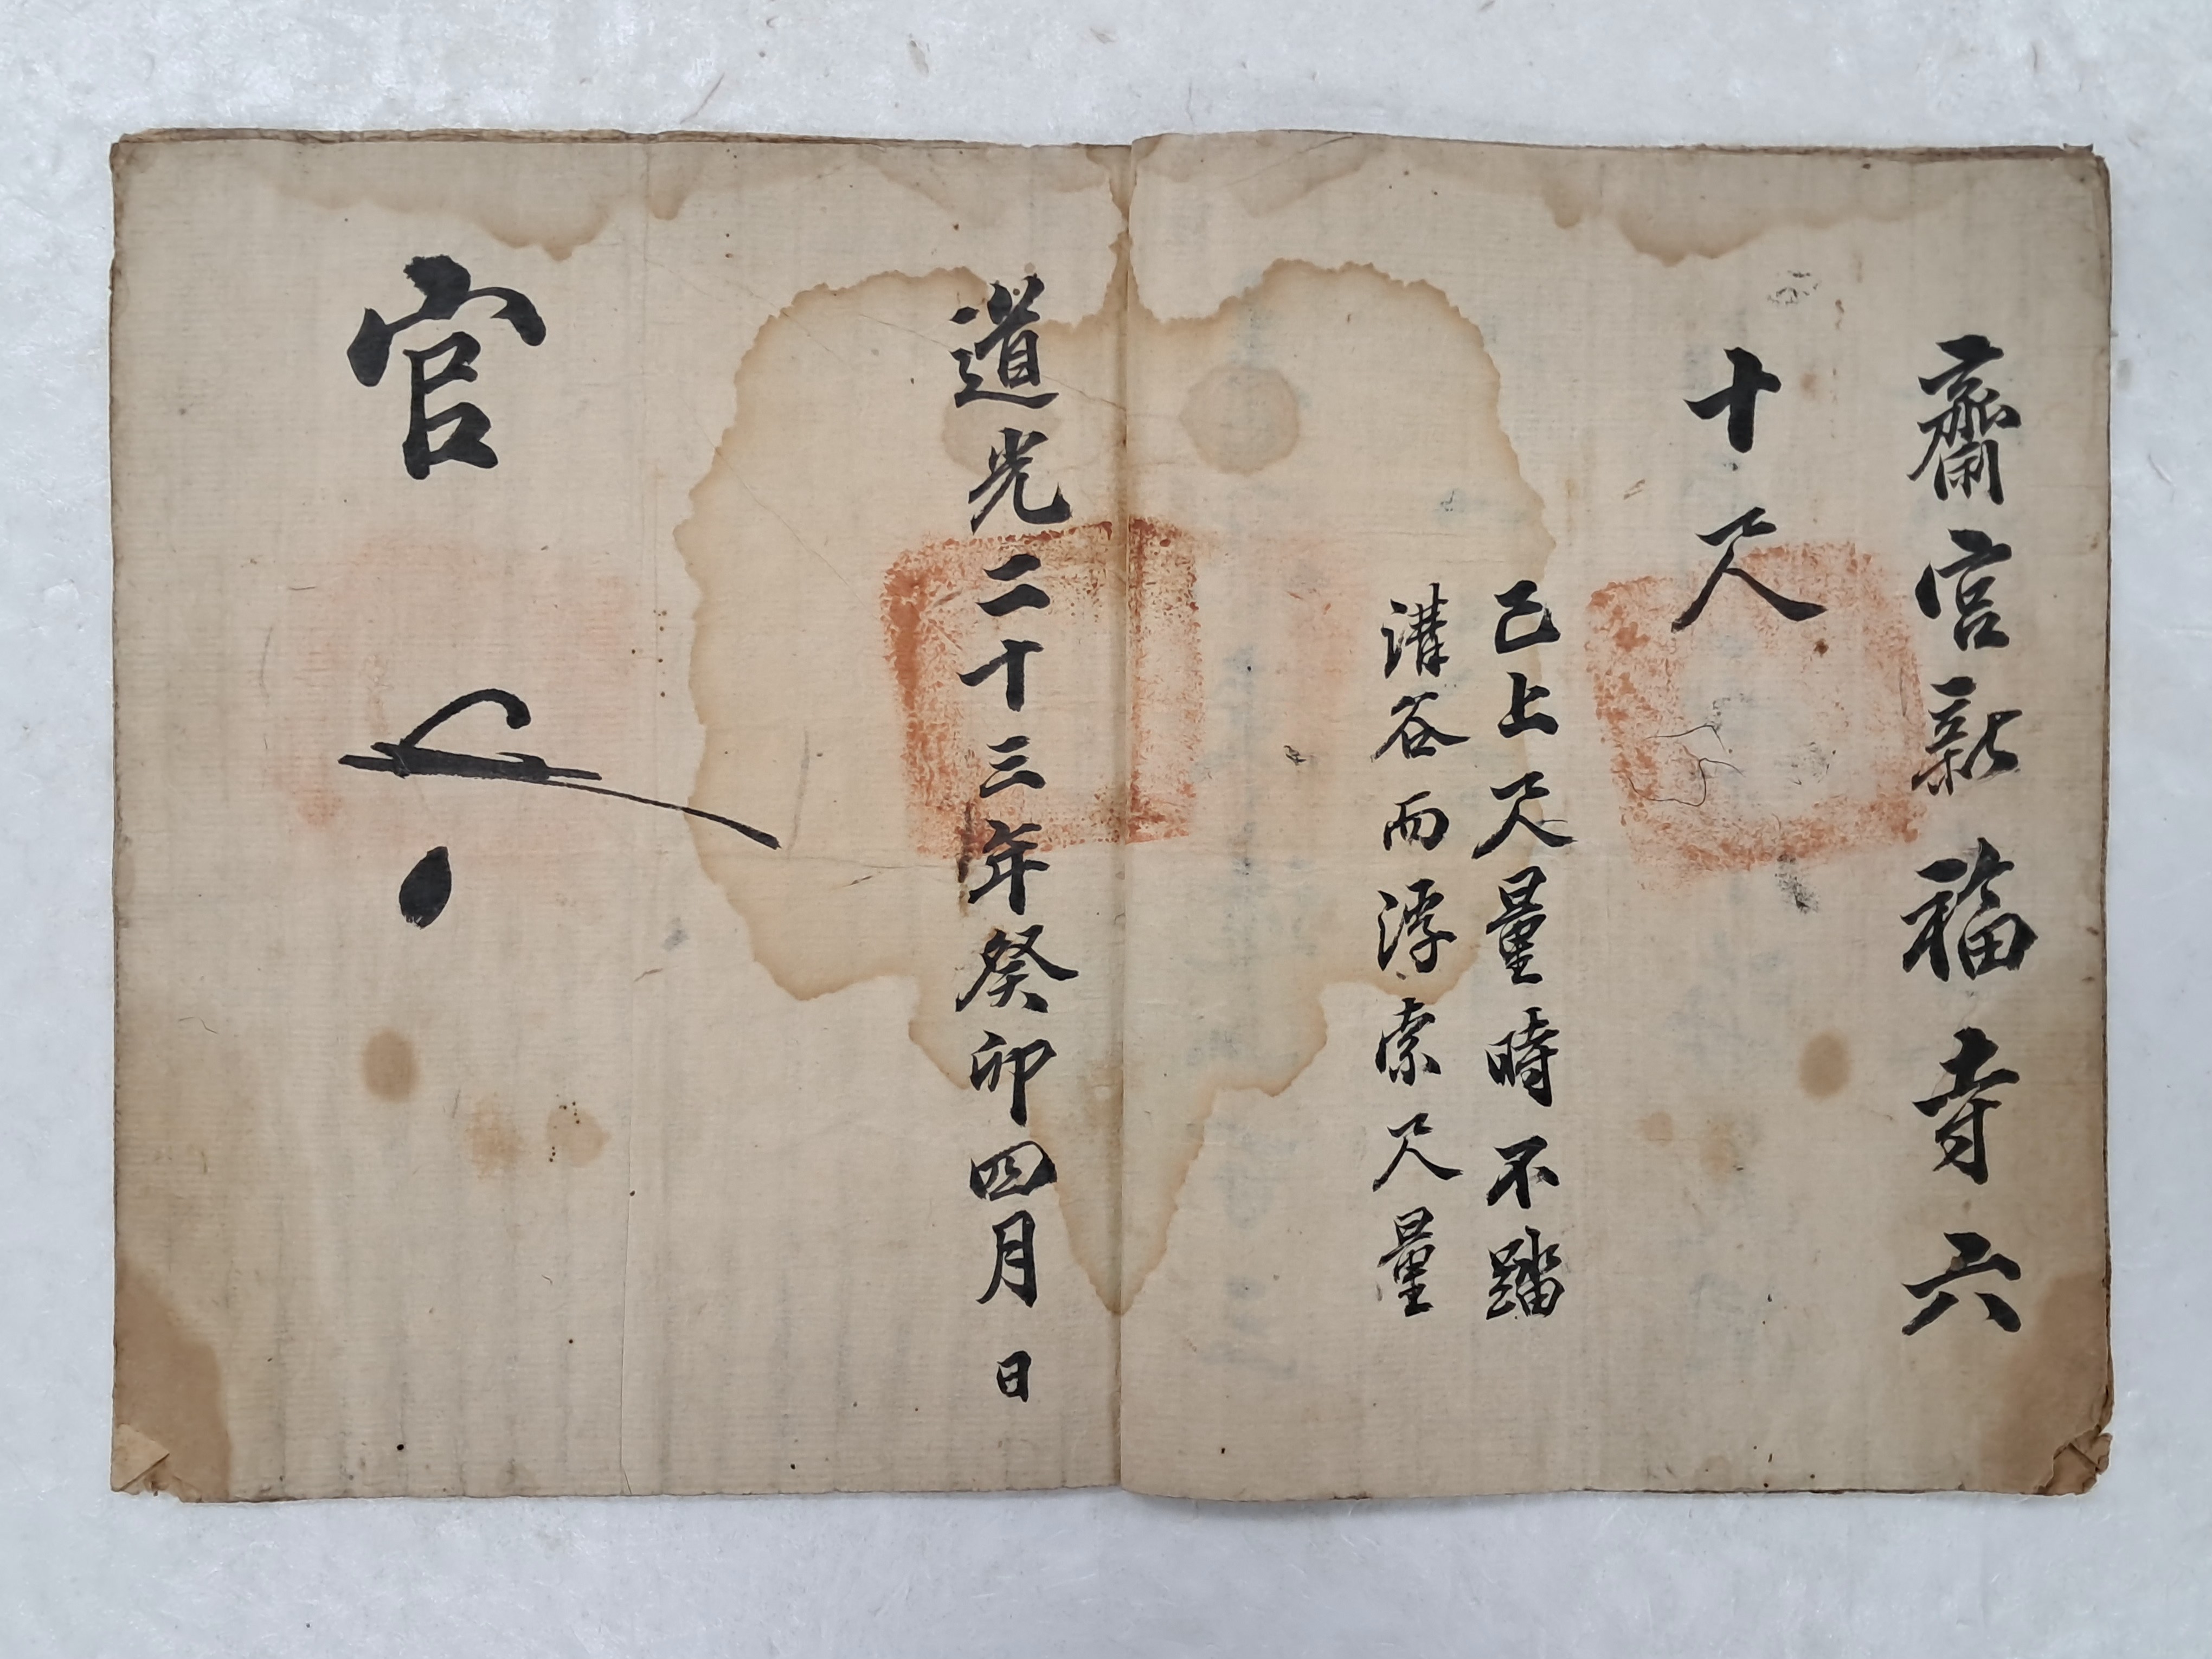 齋宮新福寺六
十尺
已上尺量時不踏
溝谷而浮索尺量
道光二十三年癸卯四月 日
官